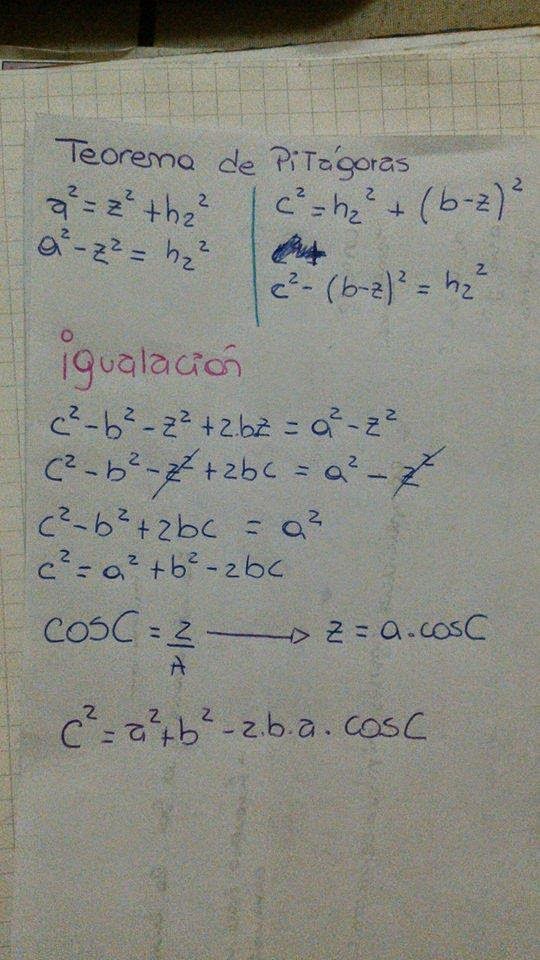 Teorema de Pitágoras
a² = z² + h₂²
a² - z² = h₂²
c² = h₂² + (b-z)²
c² - (b-z)² = h₂²
igualación
c² - b² - z² + 2bz = a² - z²
c² - b² - z² + 2bc = a² - z²
c² - b² + 2bc = a²
c² = a² + b² - 2bc
cosC = z/A → z = a.cosC
c² = a² + b² - 2.b.a. cosC